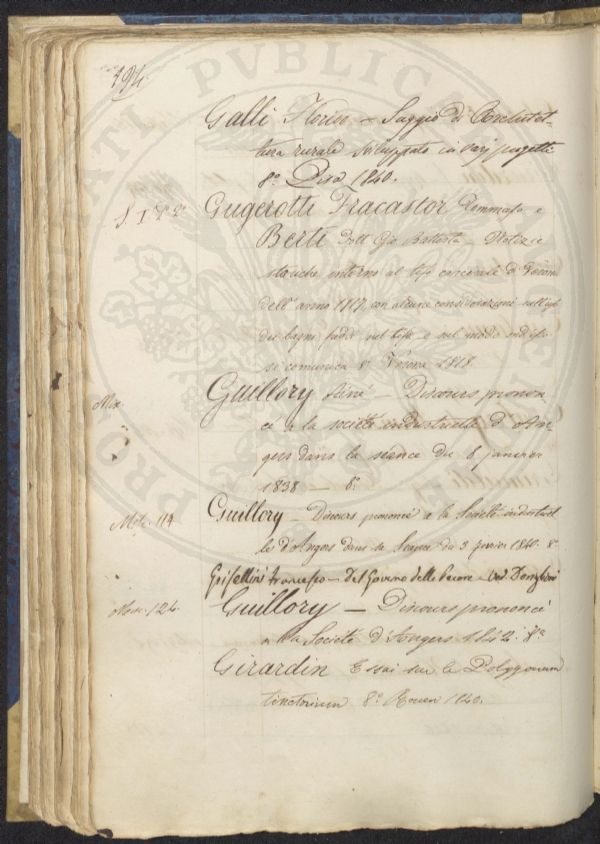 394.
Galli Florin – Saggio di Architet-
tura rurale sviluppato in varj progetti
8° Pisa 1840.
Gugerotti Fracastor Tommaso e
Berti Dott Gio Battista – Notizie
storiche intorno al tifo carcerale di Verona
dell'anno 1817 con alcune considerazioni sull'uso
dei bagni freddi nel tifo e sul modo ond'esso
si comunica 8° Verona 1818
Mix.
Guillory Ainé – Discours pronon
cé a la societé industrielle d'An
gers dans la séance du 8 janvier
1838 – 8°
Misc. 114
Guillory – Discours prononcé a la Société industriel
le d'Angers dans sa Seance du 3 fevrier 1840. 8°
Grisellini Francesco – Del Governo delle Pecore – Ved.
Misc. 124.
Guillory – Discours prononcé
a la Societé d'Angers 1842. 8°
Girardin Essai sur le Polygonum
tinctorium 8° Rouen 1840.